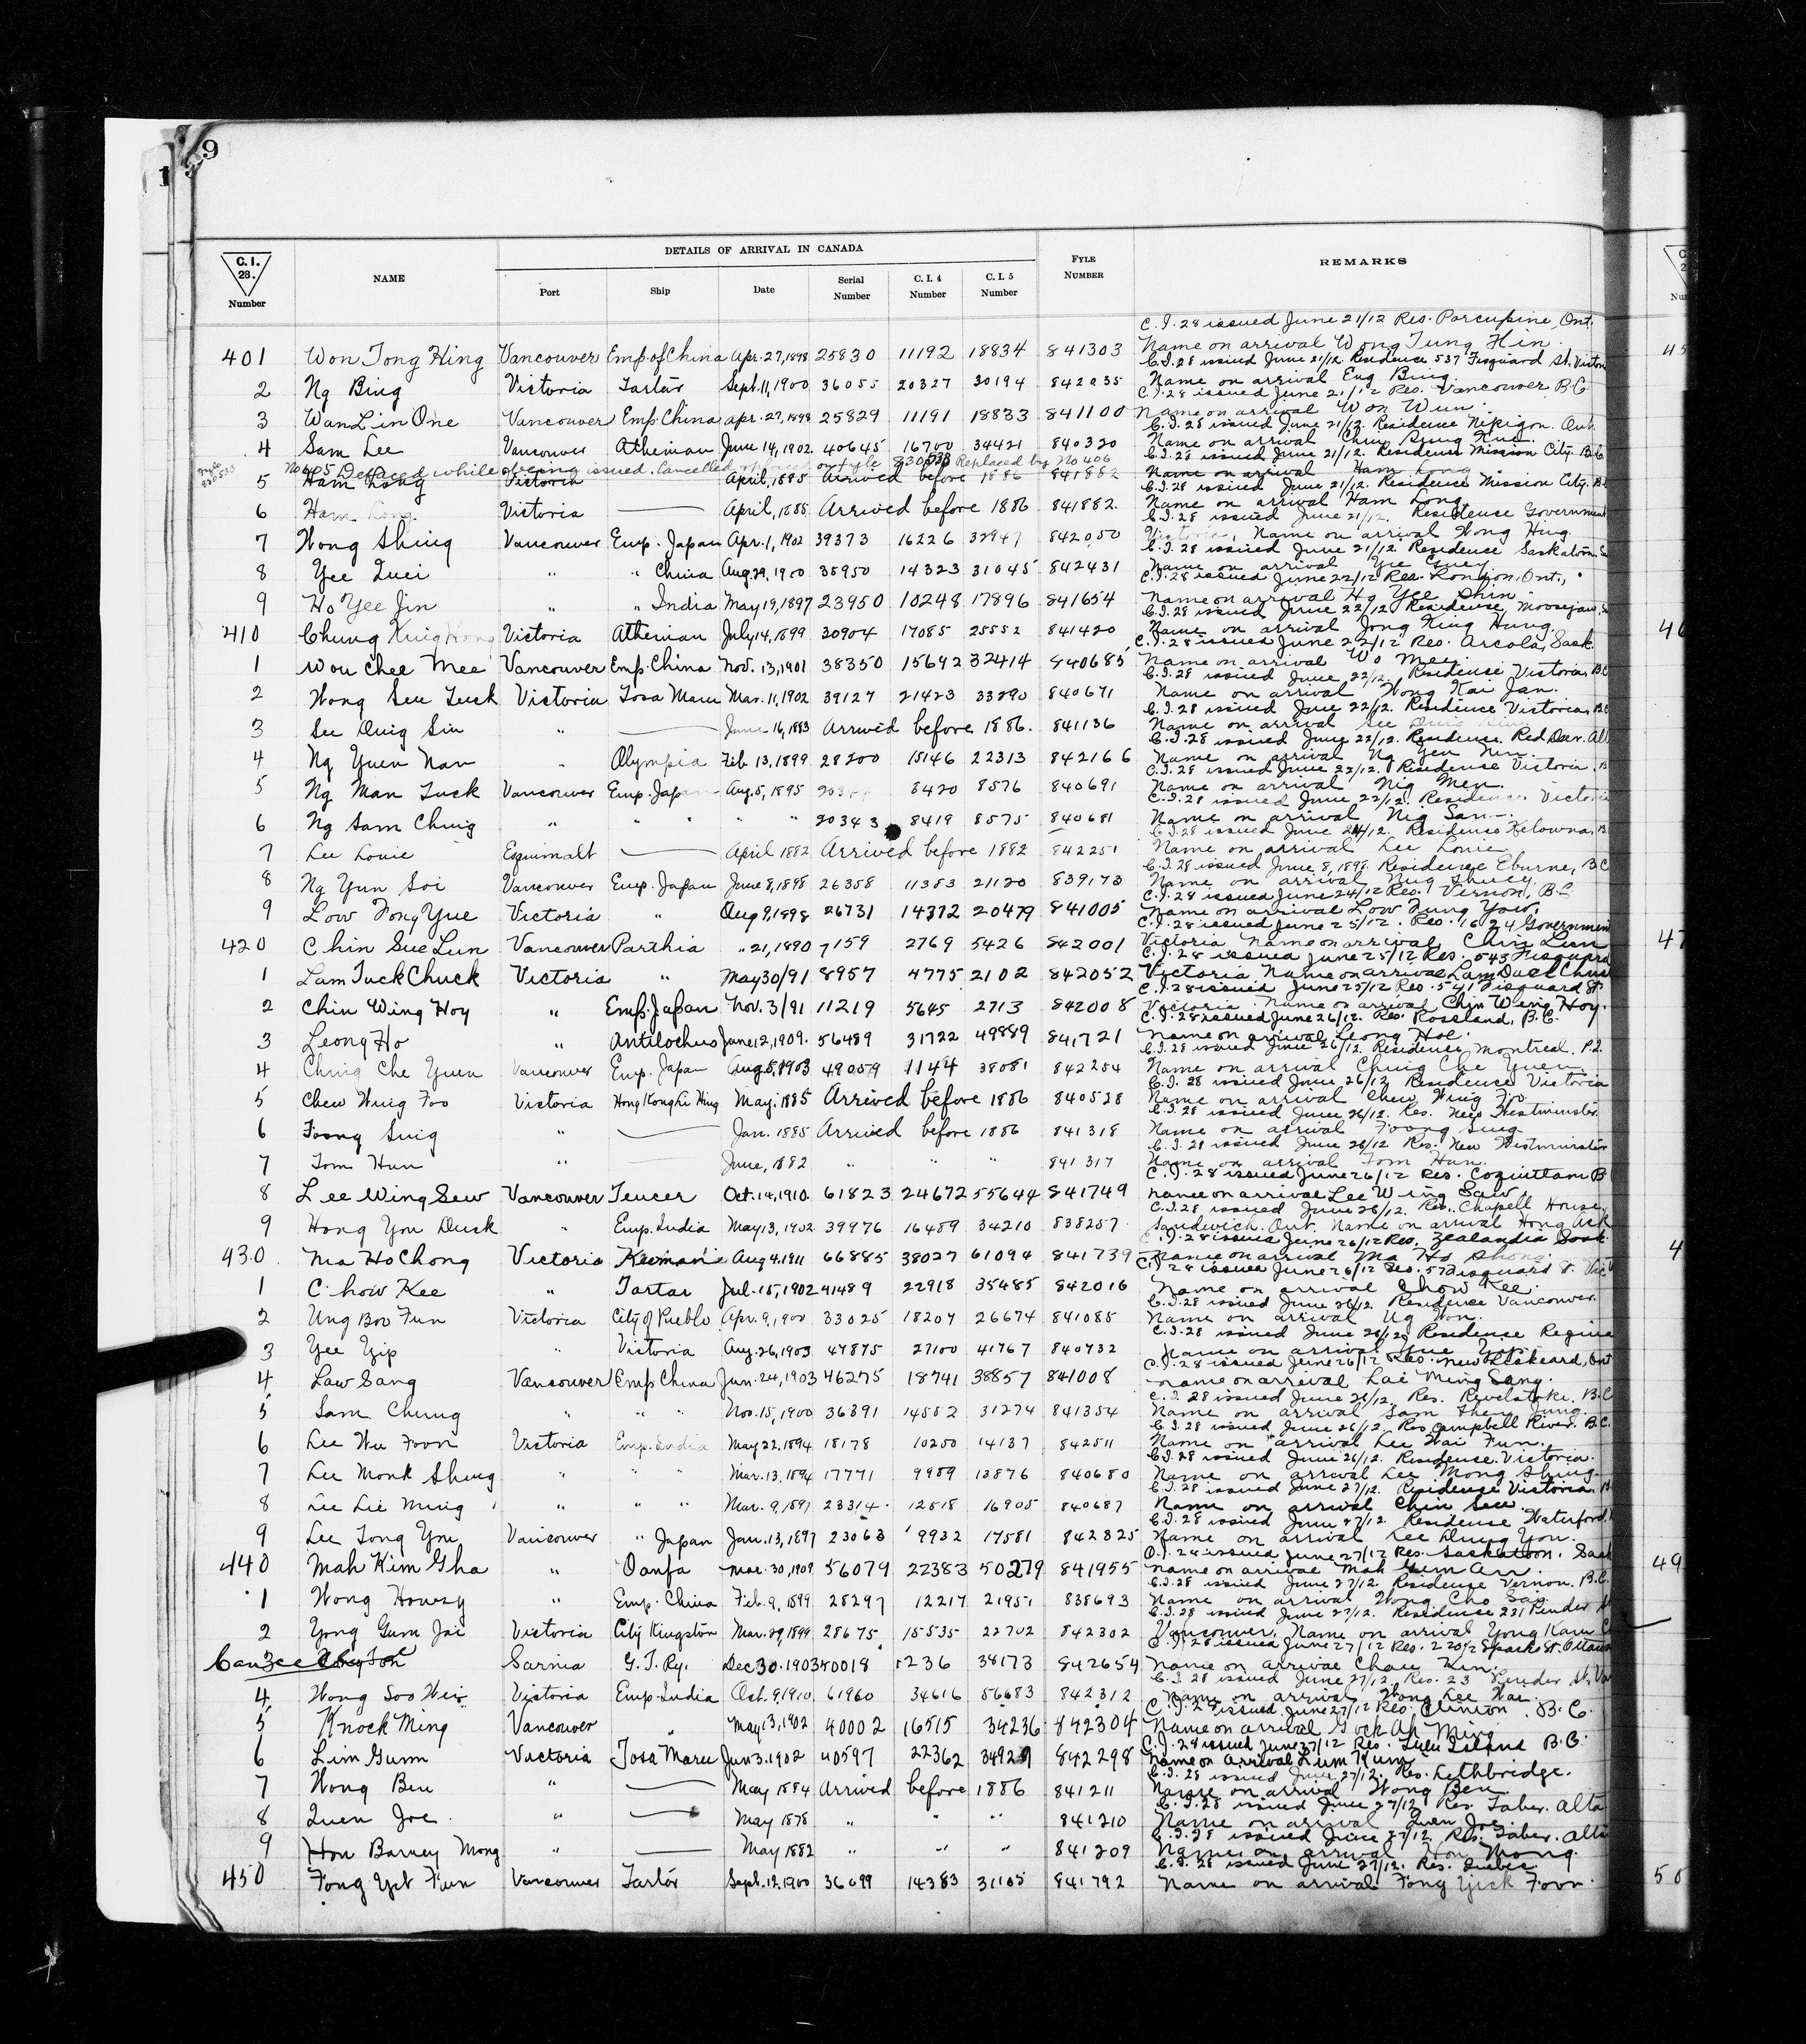 9
DETAILS OF ARRIVAL IN CANADA
C. I. 28. Number NAME Port Ship Date Serial Number C. I. 4 Number C. I. 5 Number FYLE NUMBER REMARKS
C.I. 28 issued June 21/12 Res. Porcupine, Ont.
401 Won Tong Hing Vancouver Emp. of China Apr. 27, 1898 25830 11192 18834 841303 Name on arrival Wong Tung Hin.
C.I. 28 issued June 21/12. Residence 537 Fisguard St. Victoria
2 Ng Bing Victoria Tartar Sept. 11, 1900 36055 20327 30194 842035 Name on arrival Eng Bing.
C.I. 28 issued June 21/12 Res. Vancouver B.C.
3 Wan Lin One Vancouver Emp. China Apr. 27, 1898 25829 11191 18833 841100 Name on arrival Won Wun.
C.I. 28 issued June 21/12. Residence Nipigon. Ont.
4 Sam Lee Vancouver Athenian June 14, 1902 40645 16700 34421 840320 Name on arrival
C.I. 28 issued June 21/12. Residence Mission City. B.C.
No 405 Defaced while being issued. Cancelled on fyle Replaced by No 406
5 Ham Long Victoria April, 1885 Arrived before 1886 841882 Name on arrival Ham Long.
C.I. 28 issued June 21/12. Residence Mission City. B.C.
6 Ham Long Victoria — April, 1885 Arrived before 1886 841882 Name on arrival Ham Long.
C.I. 28 issued June 21/12. Residence Government
7 Wong Shing Vancouver Emp. Japan Apr. 1, 1902 39373 16226 32947 842050 Victoria, Name on arrival Wong Hing.
C.I. 28 issued June 21/12 Residence Saskatoon
8 Yee Quei " " China Aug. 29, 1900 35950 14323 31045 842431 Name on arrival
C.I. 28 issued June 22/12 Res. London, Ont.,
9 Ho Yee Jin " " India May 19, 1897 23950 10248 17896 841654 Name on arrival Ho Yee Shin.
C.I. 28 issued June 22/12 Residence Moosejaw
410 Chung King Hong Victoria Athenian July 14, 1899 30904 17085 25552 841420 Name on arrival Jong King Hung.
C.I. 28 issued June 22/12 Res. Arcola, Sask.
1 Wou Chee Mee Vancouver Emp. China Nov. 13, 1901 38350 15692 32414 840685 Name on arrival Wo Mee.
C.I. 28 issued June 22/12. Residence Victoria, B.C.
2 Wong Seu Tuck Victoria Tosa Maru Mar. 11, 1902 39127 21423 33290 840671 Name on arrival Wong Kai Jan.
C.I. 28 issued June 22/12. Residence Victoria, B.C.
3 See Quig Sin " — June 16, 1883 Arrived before 1886. 841136 Name on arrival
C.I. 28 issued June 22/12. Residence. Red Deer. Alt
4 Ng Yuen Nan " Olympia Feb. 13, 1899 28200 15146 22313 842166 Name on arrival Ng Yen Nin.
C.I. 28 issued June 22/12. Residence Victoria, B
5 Ng Man Tuck Vancouver Emp. Japan Aug. 5, 1895 8420 8576 840691 Name on arrival Nig Men.
C.I. 28 issued June 22/12. Residence. Victoria
6 Ng Sam Ching " " " " " 20343 8419 8575 840681 Name on arrival Nig San.
C.I. 28 issued June 24/12. Residence Kelowna, B
7 Lee Louie Esquimalt — April 1882 Arrived before 1882 842251 Name on arrival Lee Louie
C.I. 28 issued June 8, 1898. Residence Eburne, B.C
8 Ng Yun Soi Vancouver Emp. Japan June 8, 1898 26358 11383 21120 839173 Name on arrival
C.I. 28 issued June 24/12 Res. Vernon, B.C
9 Low Fong Yue Victoria " Aug 9, 1898 26731 14372 20479 841005 Name on arrival Low Fung Yow.
C.I. 28 issued June 25/12. Res. 1624 Government
420 Chin Sue Lun Vancouver Parthia " 21, 1890 7159 2769 5426 842001 Victoria Name on arrival Chin Lun
C.I. 28 issued June 25/12 Res. 543 Fisguard
1 Lam Tuck Chuck Victoria " May 30/91 8957 4775 2102 842052 Victoria. Name on arrival Lam Duck Chuck
C.I. 28 issued June 25/12 Res. 541 Fisguard St.
2 Chin Wing Hoy " Emp. Japan Nov. 3/91 11219 5645 2713 842008 Victoria. Name on arrival Chin Wing Hoy.
C.I. 28 issued June 26/12. Res. Rossland, B.C.
3 Leong Ho " Antilochus June 12, 1909. 56489 31722 49889 841721 Name on arrival Leong Hoe.
C.I. 28 issued June 26/12. Residence Montreal. P.Q.
4 Ching Che Yuen Vancouver Emp. Japan Aug. 5, 1903 49059 1144 38081 842254 Name on arrival Ching Che Yuen.
C.I. 28 issued June 26/12 Residence Victoria
5 Chew Wing Foo Victoria Hong Kong Li Hing May. 1885 Arrived before 1886 840528 Name on arrival Chew Wing Foo.
C.I. 28 issued June 26/12. Res. New Westminster
6 Foong Suig " — Jan. 1885 Arrived before 1886 841318 Name on arrival Foong Suig
C.I. 28 issued June 26/12 Res. New Westminster
7 Tom Hun " — June, 1882 " " " 841317 Name on arrival Tom Hun.
C.I. 28 issued June 26/12 Res. Coquitlam B
8 Lee Wing Sew Vancouver Teucer Oct. 14, 1910. 61823 24672 55644 841749 Name on arrival Lee Wing Saw.
C.I. 28 issued June 26/12. Res. Chapell House,
9 Hong You Duck " Emp. India May 13, 1902 39976 16489 34210 838257 Sandwich. Ont. Name on arrival Hong Ack
C.I. 28 issued June 26/12 Res. Zealandia Sask
430 Ma Ho Chong Victoria Keemun Aug 4. 1911 66885 38027 61094 841739 Name on arrival Ma Ho Shong.
C.I. 28 issued June 26/12 Res. Fisguard St. Vic
1 Chow Kee " Tartar Jul. 15, 1902 41489 22918 35485 842016 Name on arrival Chow Kee.
C.I. 28 issued June 26/12. Residence Vancouver.
2 Ung Boo Fun Victoria City of Pueblo Apr. 9, 1900 33025 18207 26674 841085 Name on arrival Ug Won.
C.I. 28 issued June 26/12. Residence Regina
3 Yee Yip " Victoria Aug. 26, 1903 47875 27100 41767 840732 Name on arrival Yue Yip.
C.I. 28 issued June 26/12 Res. New Liskeard, Ont
4 Law Sang Vancouver Emp China Jun. 24, 1903 46275 18741 38857 841008 Name on arrival Lai Ming Sang.
C.I. 28 issued June 26/12. Res. Revelstoke, B.C
5 Sam Chung " " " Nov. 15, 1900 36391 14552 31274 841354 Name on arrival Sam Jung.
C.I. 28 issued June 26/12. Res. Campbell River. B.C.
6 Lee Wee Foon Victoria Emp. India May 22. 1894 18178 10250 14137 842511 Name on arrival Lee Wai Fun.
C.I. 28 issued June 26/12. Residence. Victoria.
7 Lee Monk Shing " " " Mar. 13, 1894 17771 9989 13876 840680 Name on arrival Lee Mong Shing
C.I. 28 issued June 27/12. Residence Victoria, B
8 Lee Lie Ming " " " Mar. 9, 1897 23314 12518 16905 840687 Name on arrival Chin See.
C.I. 28 issued June 27/12. Residence Waterford,
9 Lee Tong You Vancouver " Japan Jan. 13, 1897 23063 9932 17581 842825 Name on arrival Lee Dung You.
C.I. 28 issued June 27/12 Res. Saskatoon. Sask
440 Mah Kim Gha " Oanfa Mar. 30, 1909 56079 22383 50279 841955 Name on arrival Mah Gem An.
C.I. 28 issued June 27/12. Residence Vernon. B.C.
1 Wong Housy " Emp. China Feb. 9, 1899 28297 12217 21951 838693 Name on arrival Wong Cho Sao.
C.I. 28 issued June 27/12. Residence 231 Pender St
2 Yong Gum Jai Victoria City Kingston Mar. 29, 1899 28675 15535 22702 842302 Vancouver. Name on arrival Yong Kam
C.I. 28 issued June 27/12 Res. Sparks St. Ottawa
Sarnia G.T. Ry. Dec 30. 1903 50018 1236 38173 842654 Name on arrival Chau Kin.
C.I. 28 issued June 27/12. Res. 23 Pender St. Van
4 Wong Soo Wei Victoria Emp. India Oct. 9, 1910. 61960 34616 56683 842312 Name on arrival Wong Lee Wai
C.I. 28 issued June 27/12 Res. Clinton. B.C.
5 Knock Ming Vancouver " May 13, 1902 40002 16515 34236 842304 Name on arrival Gock Ah Ming
C.I. 28 issued June 27/12 Res. Lulu Island B.C.
6 Lim Gunn Victoria Tosa Maru Jun 3. 1902 40597 22362 34929 842298 Name on arrival Lim Kum
C.I. 28 issued June 27/12. Res. Lethbridge.
7 Wong Ben " — May 1884 Arrived before 1886 841211 Name on arrival Wong Ben
C.I. 28 issued June 27/12 Res. Taber. Alta
8 Quen Joe " — May 1878 " " " 841210 Name on arrival Quen Joe
C.I. 28 issued June 27/12. Res. Taber. Alta
9 Hon Barney Mong " — May 1882 " " " 841209 Name on arrival Hon Mong.
C.I. 28 issued June 27/12. Res. Quebec
450 Fong Yet Fun Vancouver Tartar Sept. 12, 1900 36099 14383 31105 841792 Name on arrival Fong Yick Foon.